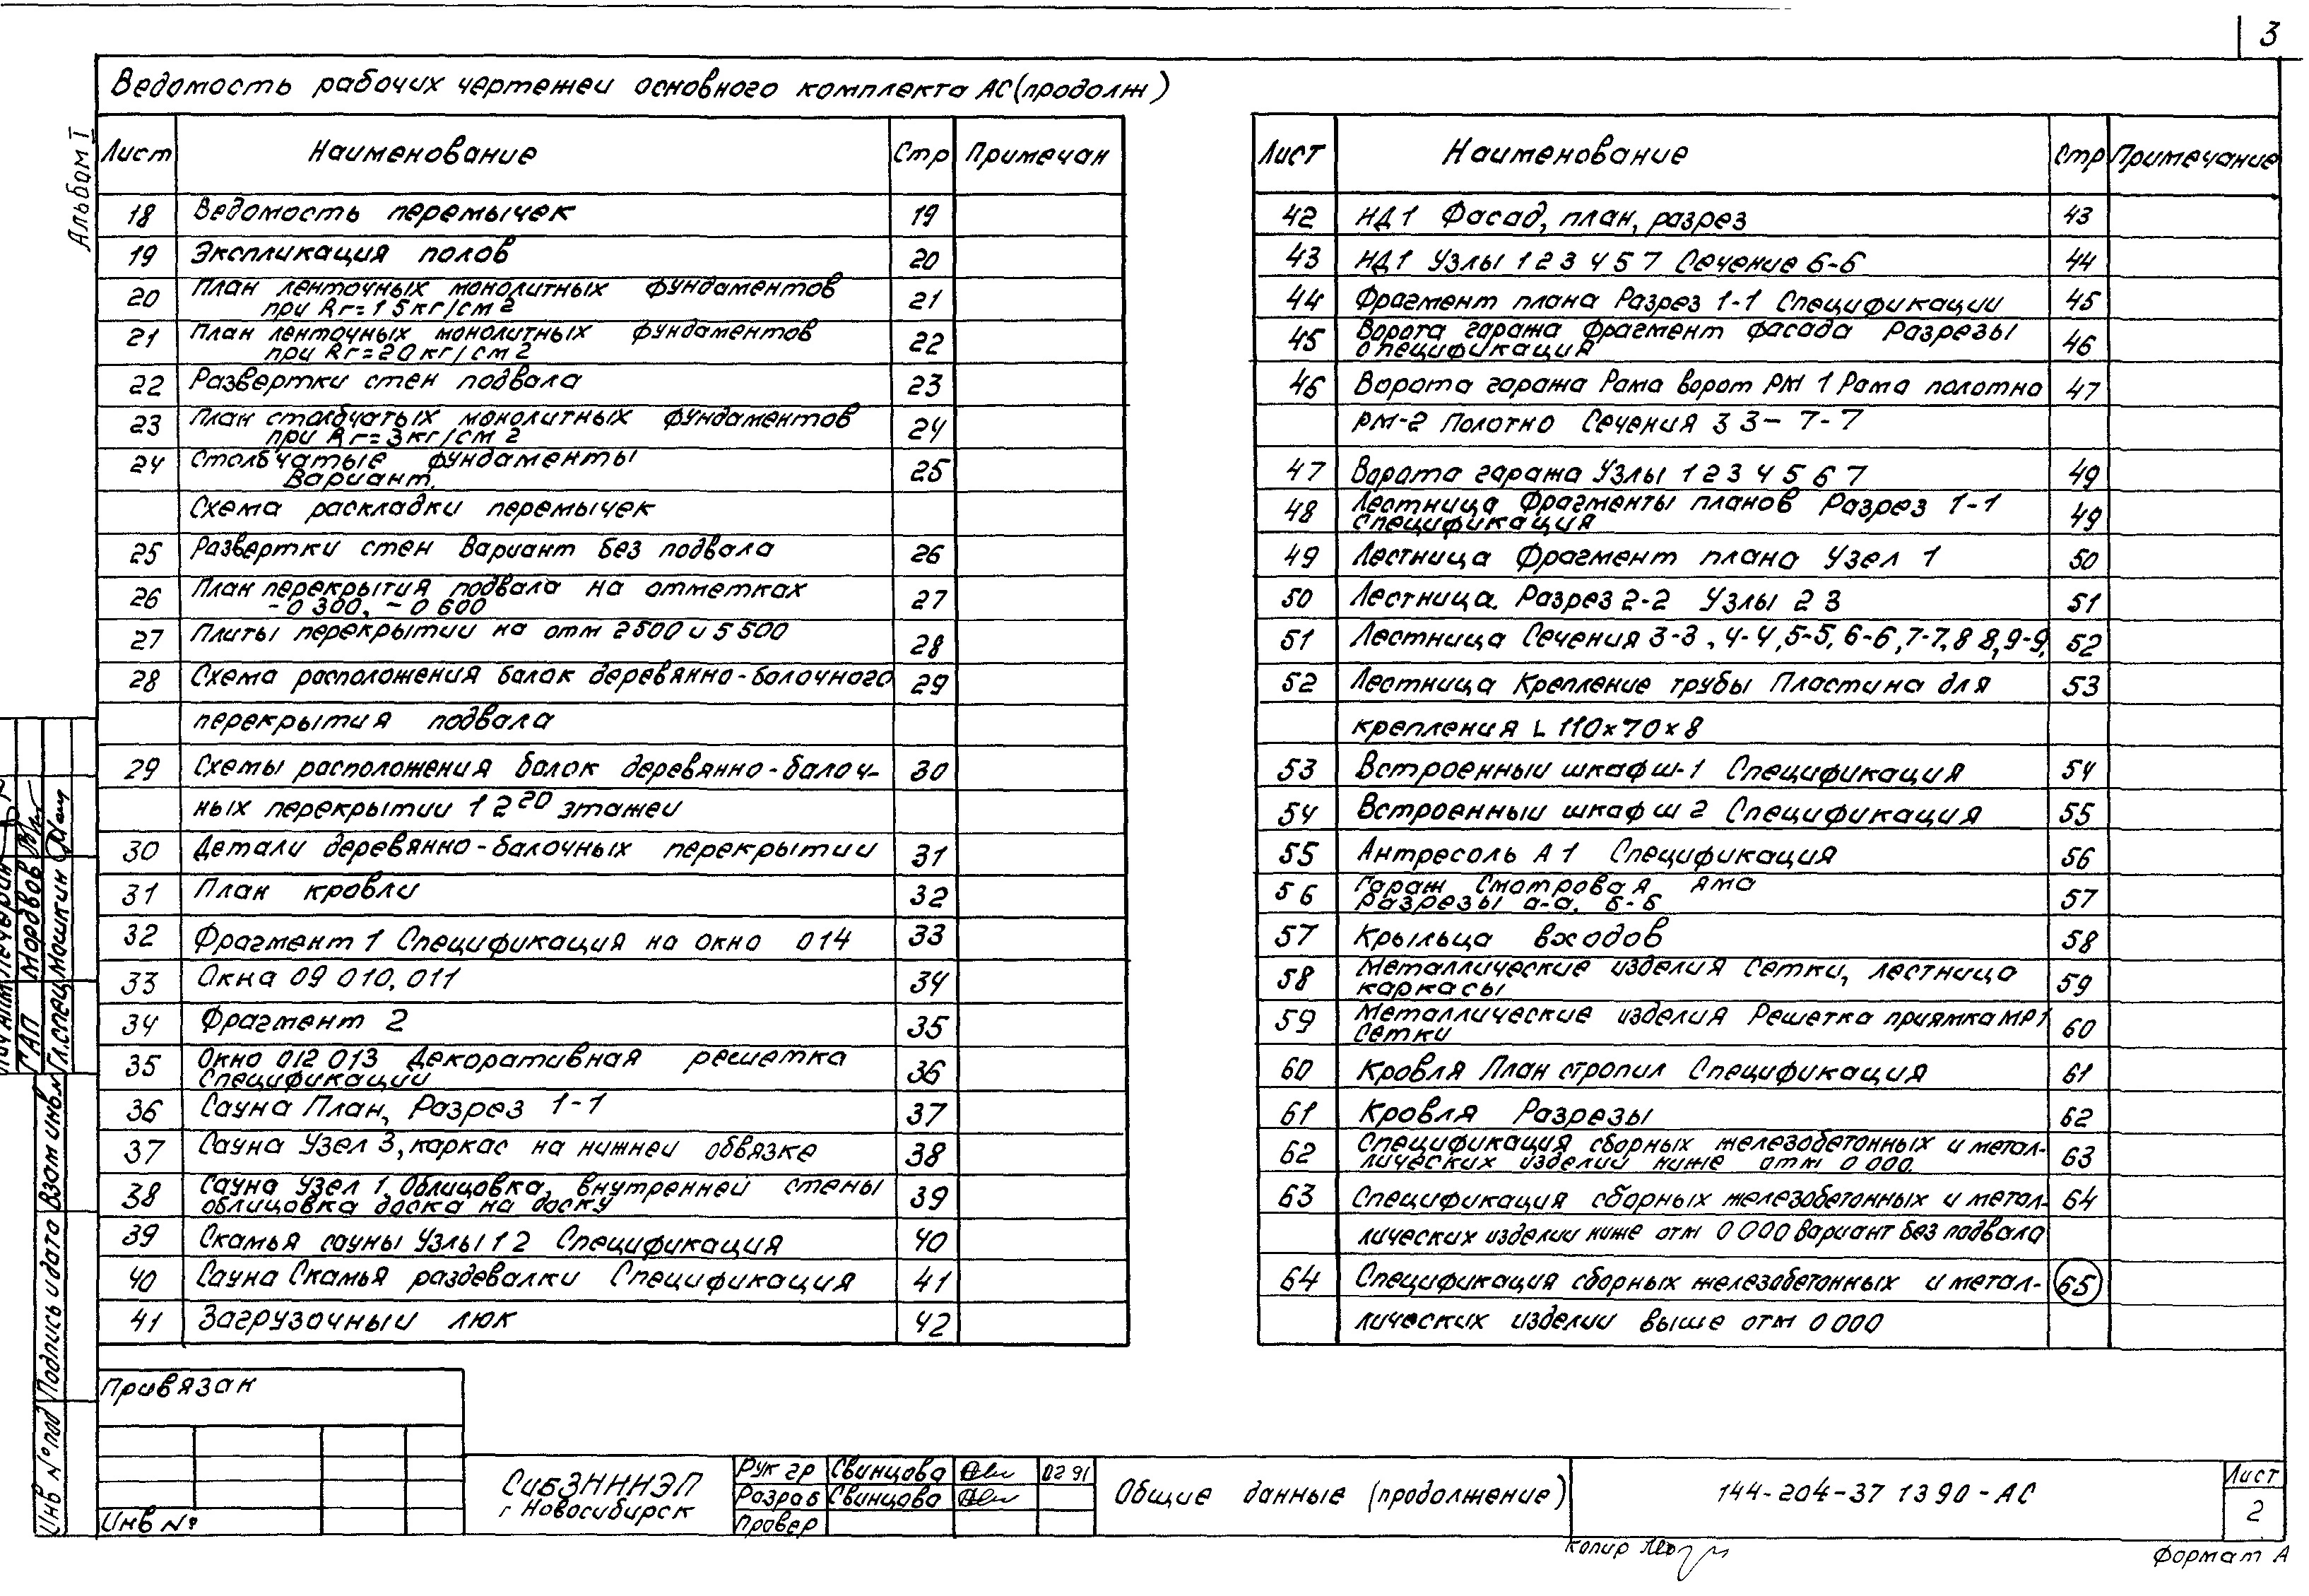 3
Ведомость рабочих чертежеи основного комплекта АС (продолж)
Альбом I
Лист Наименование Стр Примечан
18 Ведомость перемычек 19
19 Экспликация полов 20
20 План ленточных монолитных фундаментов 21
при Rг=15кг/см2
21 План ленточных монолитных фундаментов 22
при Rг=20кг/см2
22 Развертки стен подвала 23
23 План столбчатых монолитных фундаментов 24
при Rг=3кг/см2
24 Столбчатые фундаменты 25
Вариант.
Схема раскладки перемычек
25 Развертки стен Вариант без подвала 26
26 План перекрытия подвала на отметках 27
-0 300, -0 600
27 Плиты перекрытии на отм 2500 и 5 500 28
28 Схема расположения балок деревянно-балочного 29
перекрытия подвала
29 Схемы расположения балок деревянно-балоч- 30
ных перекрытии 1 2го этажеи
30 Детали деревянно-балочных перекрытии 31
31 План кровли 32
32 Фрагмент 1 Спецификация на окно 014 33
33 Окна 09 010, 011 34
34 Фрагмент 2 35
35 Окно 012 013 Декоративная решетка 36
Спецификации
36 Сауна План, Разрез 1-1 37
37 Сауна Узел 3, каркас на нижнеи обвязке 38
38 Сауна Узел 1. Облицовка внутренней стены 39
облицовка доска на доску
39 Скамья сауны Узлы 1 2 Спецификация 40
40 Сауна Скамья раздевалки Спецификация 41
41 Загрузочныи люк 42
Лист Наименование Стр Примечание
42 НД1 Фасад, план, разрез 43
43 НД1 Узлы 1 2 3 4 5 7 Сечение 6-6 44
44 Фрагмент плана Разрез 1-1 Спецификации 45
45 Ворота гаража Фрагмент фасада Разрезы 46
спецификация
46 Ворота гаража Рама ворот РМ 1 Рама полотно 47
РМ-2 Полотно Сечения 3 3 - 7-7
47 Ворота гаража Узлы 1 2 3 4 5 6 7 49
48 Лестница Фрагменты планов Разрез 1-1 49
спецификация
49 Лестница Фрагмент плана Узел 1 50
50 Лестница. Разрез 2-2 Узлы 2 3 51
51 Лестница Сечения 3-3, 4-4, 5-5, 6-6, 7-7, 8 8, 9-9, 52
52 Лестница Крепление трубы Пластина для 53
крепления L 110×70×8
53 Встроенныи шкаф ш-1 Спецификация 54
54 Встроенныи шкаф ш 2 Спецификация 55
55 Антресоль А 1 Спецификация 56
56 Гараж Смотровая яма 57
Разрезы а-а, б-б
57 Крыльца входов 58
58 Металлические изделия Сетки, лестница 59
каркасы
59 Металлические изделия Решетка приямка МР1 60
Сетки
60 Кровля План стропил Спецификация 61
61 Кровля Разрезы 62
62 Спецификация сборных железобетонных и метал- 63
лических изделий ниже отм 0 000
63 Спецификация сборных железобетонных и метал- 64
лических изделии ниже отм 0 000 Вариант без подвала
64 Спецификация сборных железобетонных и метал- 65
лических изделии выше отм 0 000
ГАП Мордвов
Гл.спец Мошкин
Взам инв N
Подпись и дата
Инв N° подл
Привязан
Инв №
СибЗНИИЭП
г Новосибирск
Рук гр Свинцова 02 91
Разраб Свинцова
Провер
Общие данные (продолжение)
144-204-37 13 90 - АС
Лист
2
Копир
Формат А